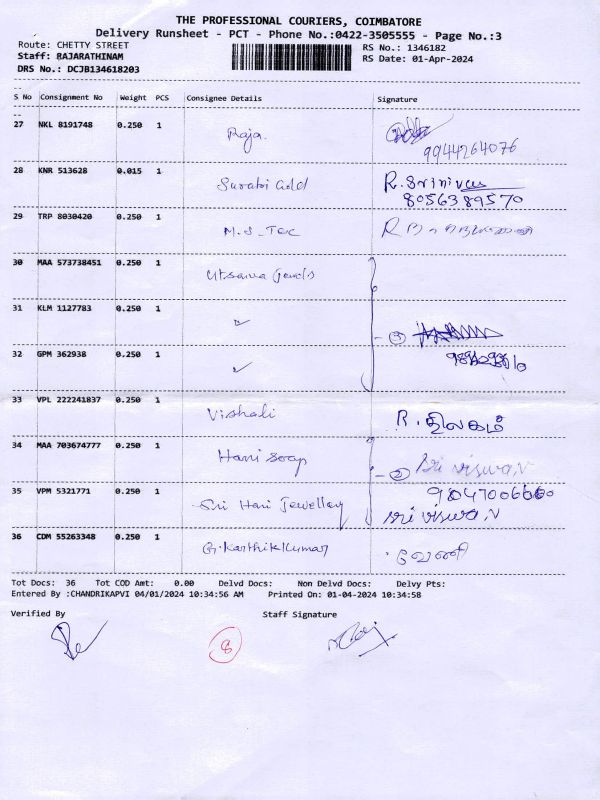 THE PROFESSIONAL COURIERS, COIMBATORE
Delivery Runsheet - PCT - Phone No.:0422-3505555 - Page No.:3
Route: CHETTY STREET RS No.: 1346182
Staff: RAJARATHINAM RS Date: 01-Apr-2024
DRS No.: DCJB134618203
S No Consignment No Weight PCS Consignee Details Signature
27 NKL 8191748 0.250 1 Raja.
9944264076
28 KNR 513628 0.015 1 Surabi Gold R. Srinivas
8056389570
29 TRP 8030420 0.250 1 M.S_Tec
30 MAA 573738451 0.250 1 Utsava Jewels
31 KLM 1127783 0.250 1 ✓ - ③
32 GPM 362938 0.250 1 ✓
33 VPL 222241837 0.250 1 Vishali R. திலகம்
34 MAA 703674777 0.250 1 Hani soap - ② Sri viswa.V
35 VPM 5321771 0.250 1 Sri Hari Jewellery Sri viswa.V
36 CDM 55263348 0.250 1 G.Karthik Kumar வேணி
Tot Docs: 36 Tot COD Amt: 0.00 Delvd Docs: Non Delvd Docs: Delvy Pts:
Entered By :CHANDRIKAPVI 04/01/2024 10:34:56 AM Printed On: 01-04-2024 10:34:58
Verified By Staff Signature
8